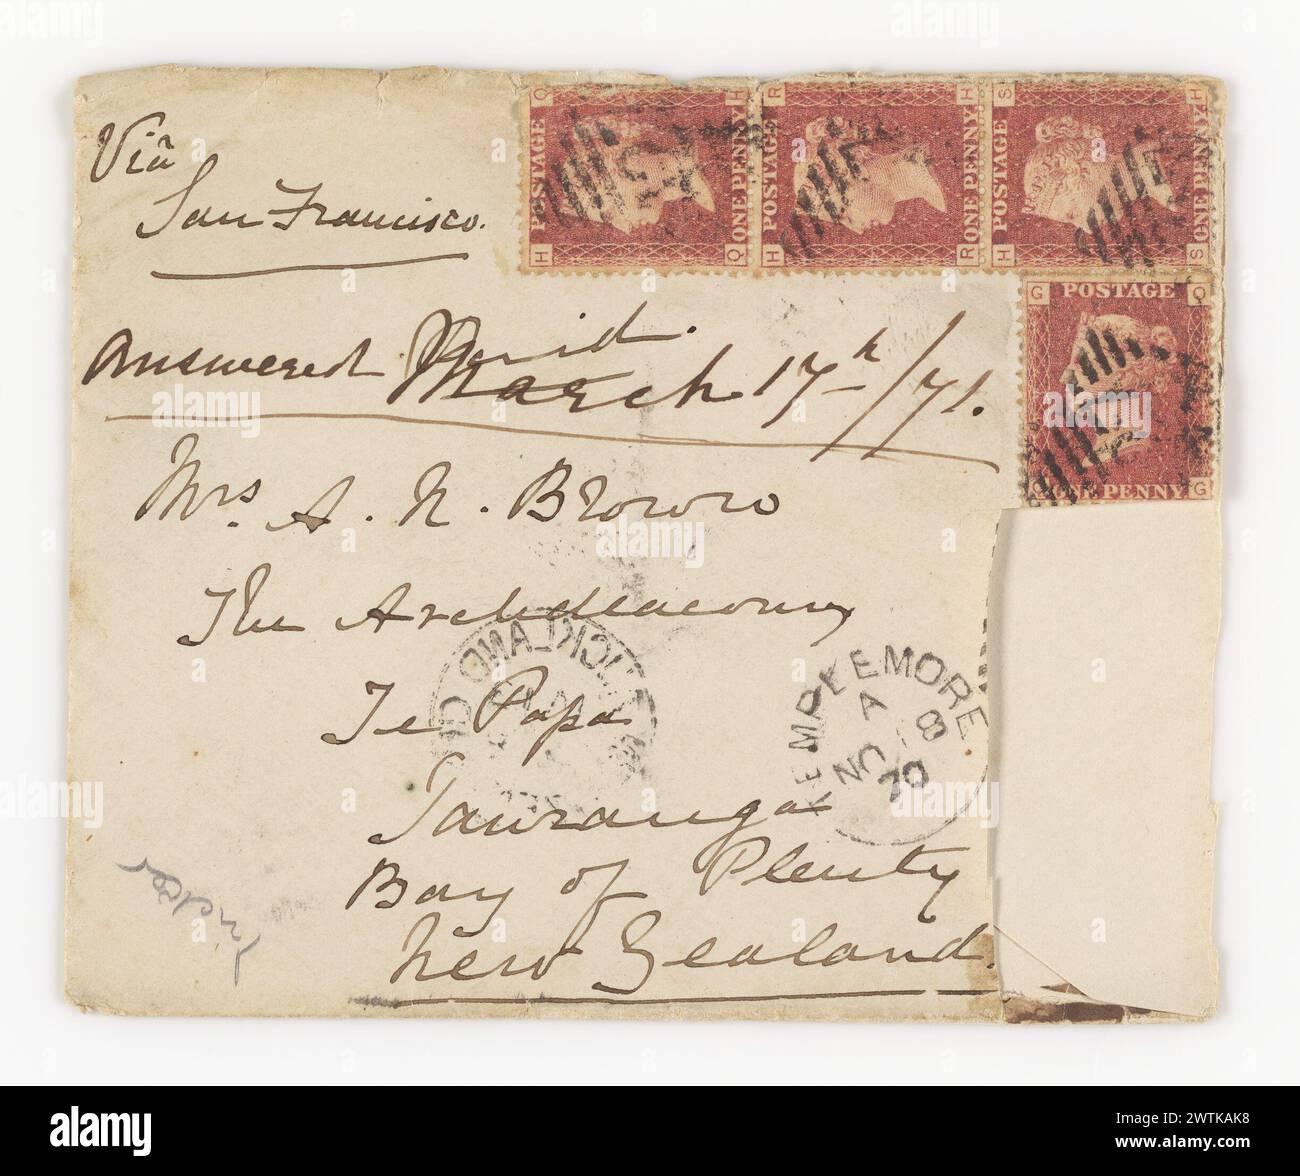 Via
San Francisco.
Answered March 17th/71.
Mrs. A. N. Brown
The Archdeaconry
Te Papa
Tauranga
Bay of Plenty
New Zealand.
Q H
POSTAGE
ONE PENNY
H Q
R H
POSTAGE
ONE PENNY
H R
S H
POSTAGE
ONE PENNY
H S
G Q
POSTAGE
ONE PENNY
Q G
AUCKLAND
KEMPLEEMORE
A
NO 18
70
alamy
Image ID: 2WTKAK8
www.alamy.com